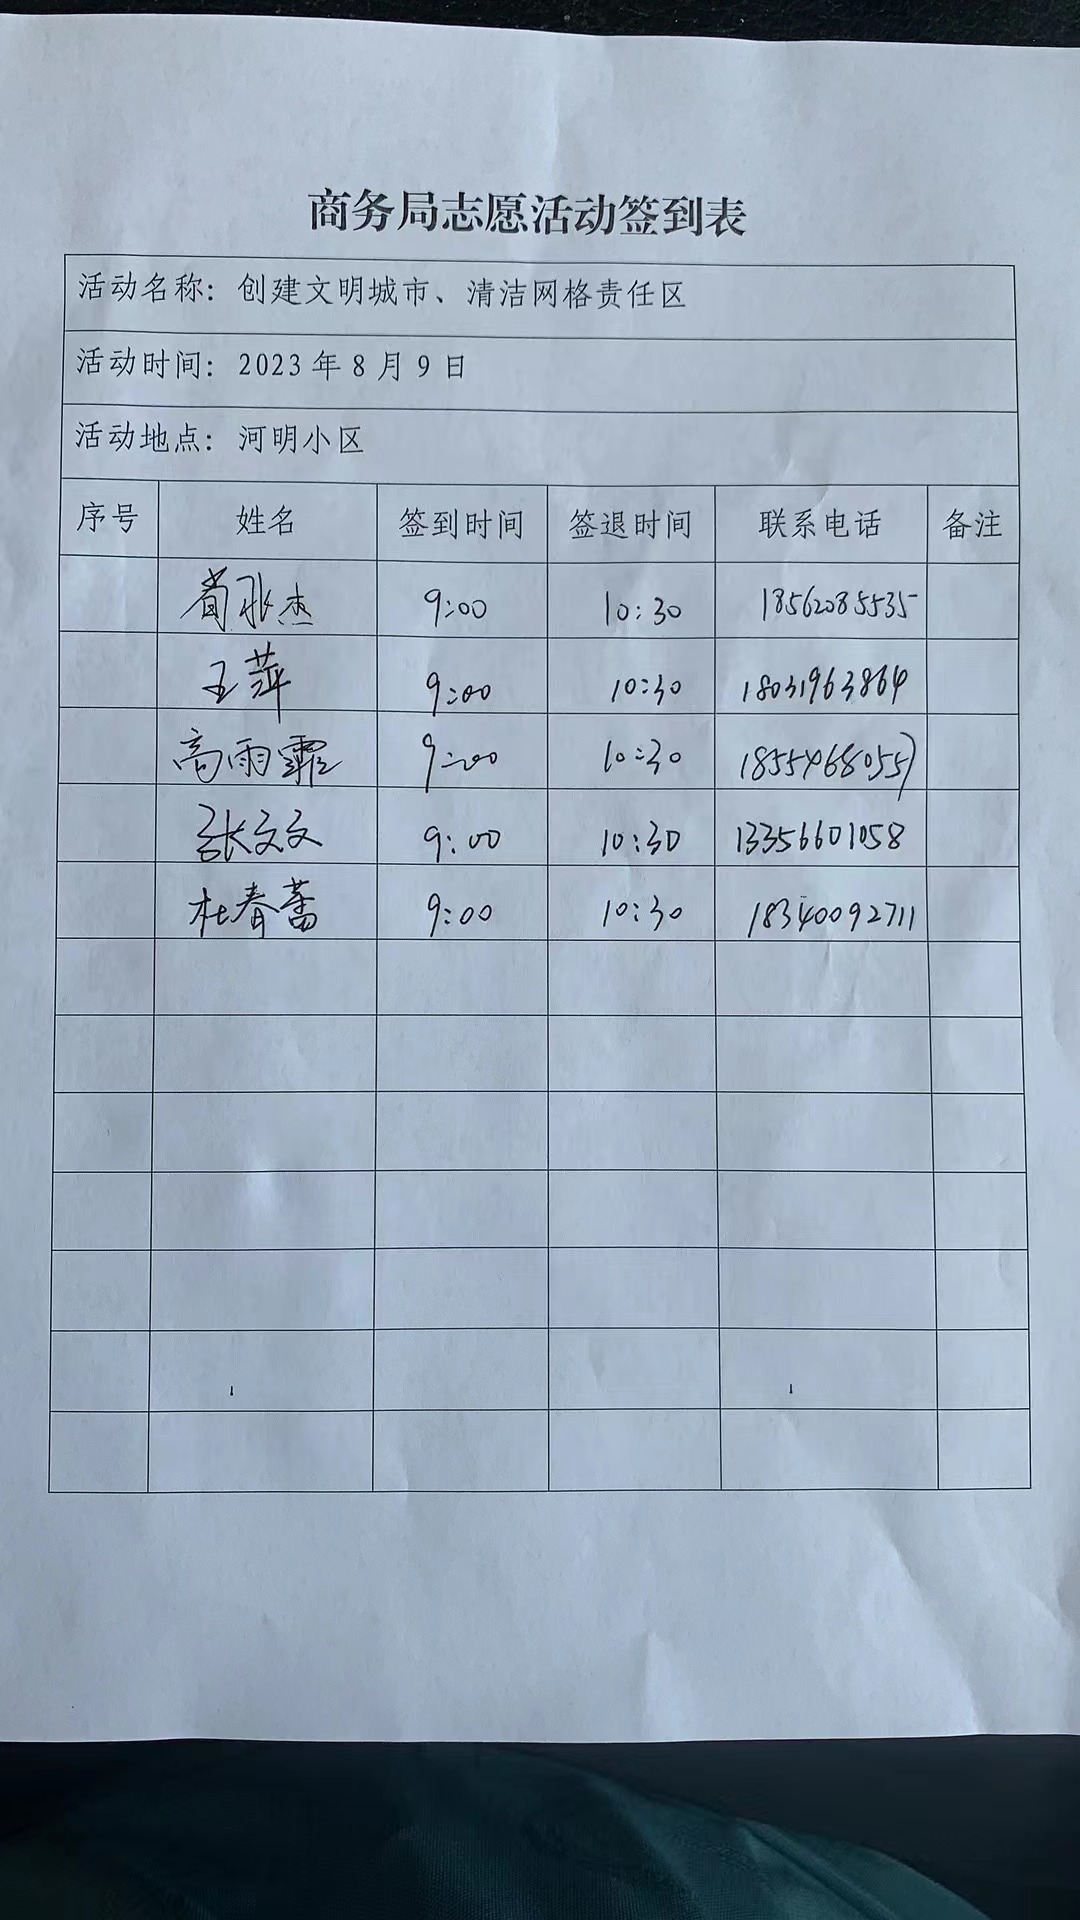 商务局志愿活动签到表
活动名称：创建文明城市、清洁网格责任区
活动时间：2023年8月9日
活动地点：河明小区
序号 姓名 签到时间 签退时间 联系电话 备注
9:00 10:30 18562085535
王萍 9:00 10:30 18031963864
高雨霏 9:00 10:30 18554680557
张文文 9:00 10:30 13356601058
杜春蕾 9:00 10:30 18340092711